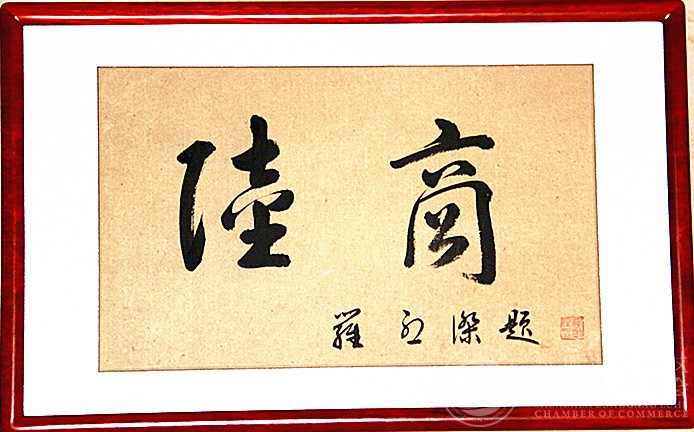 陸商
羅烈傑題
CHAMBER OF COMMERCE